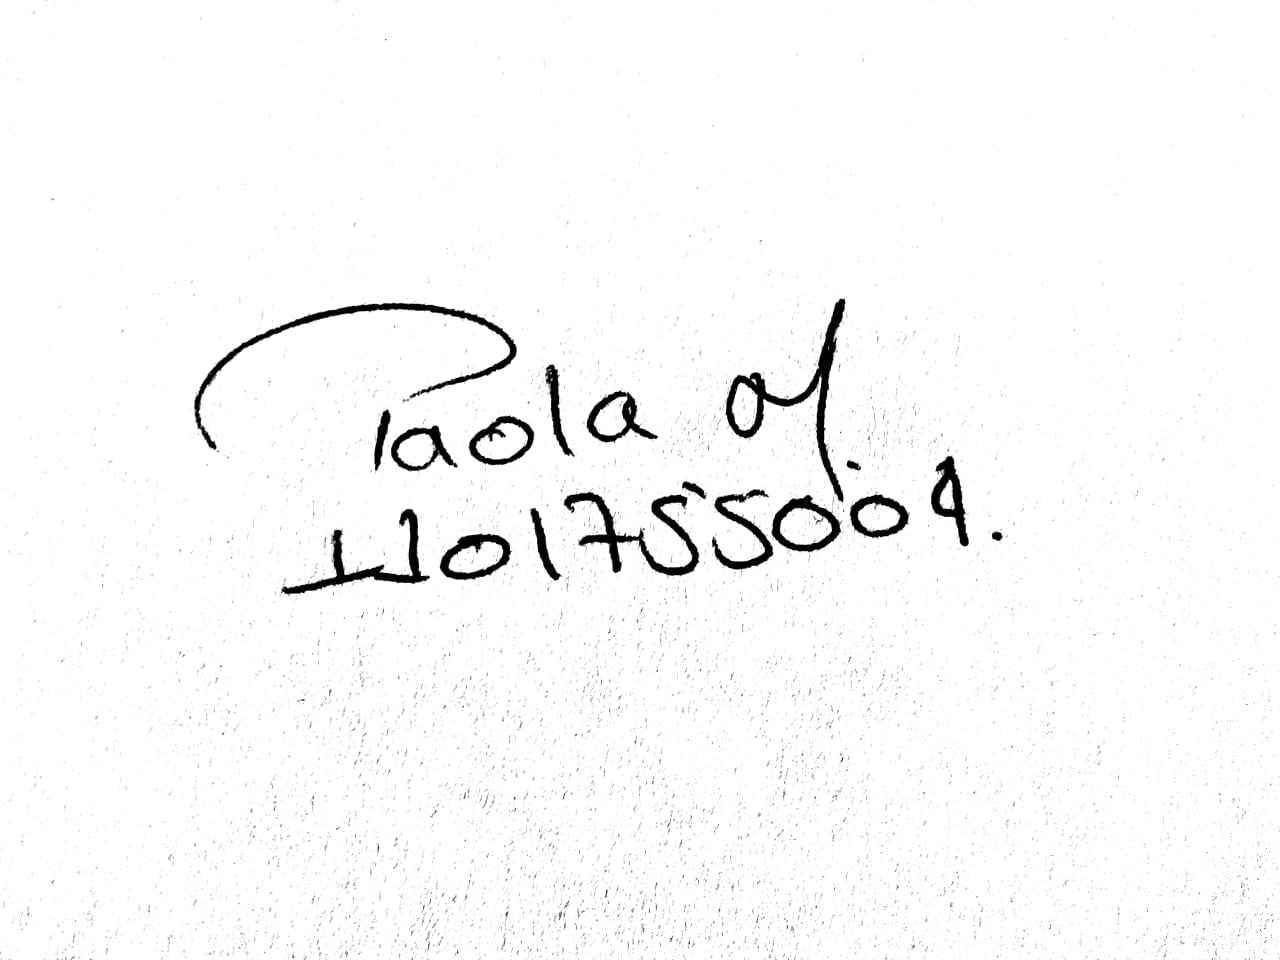 Paola M
1101755009.